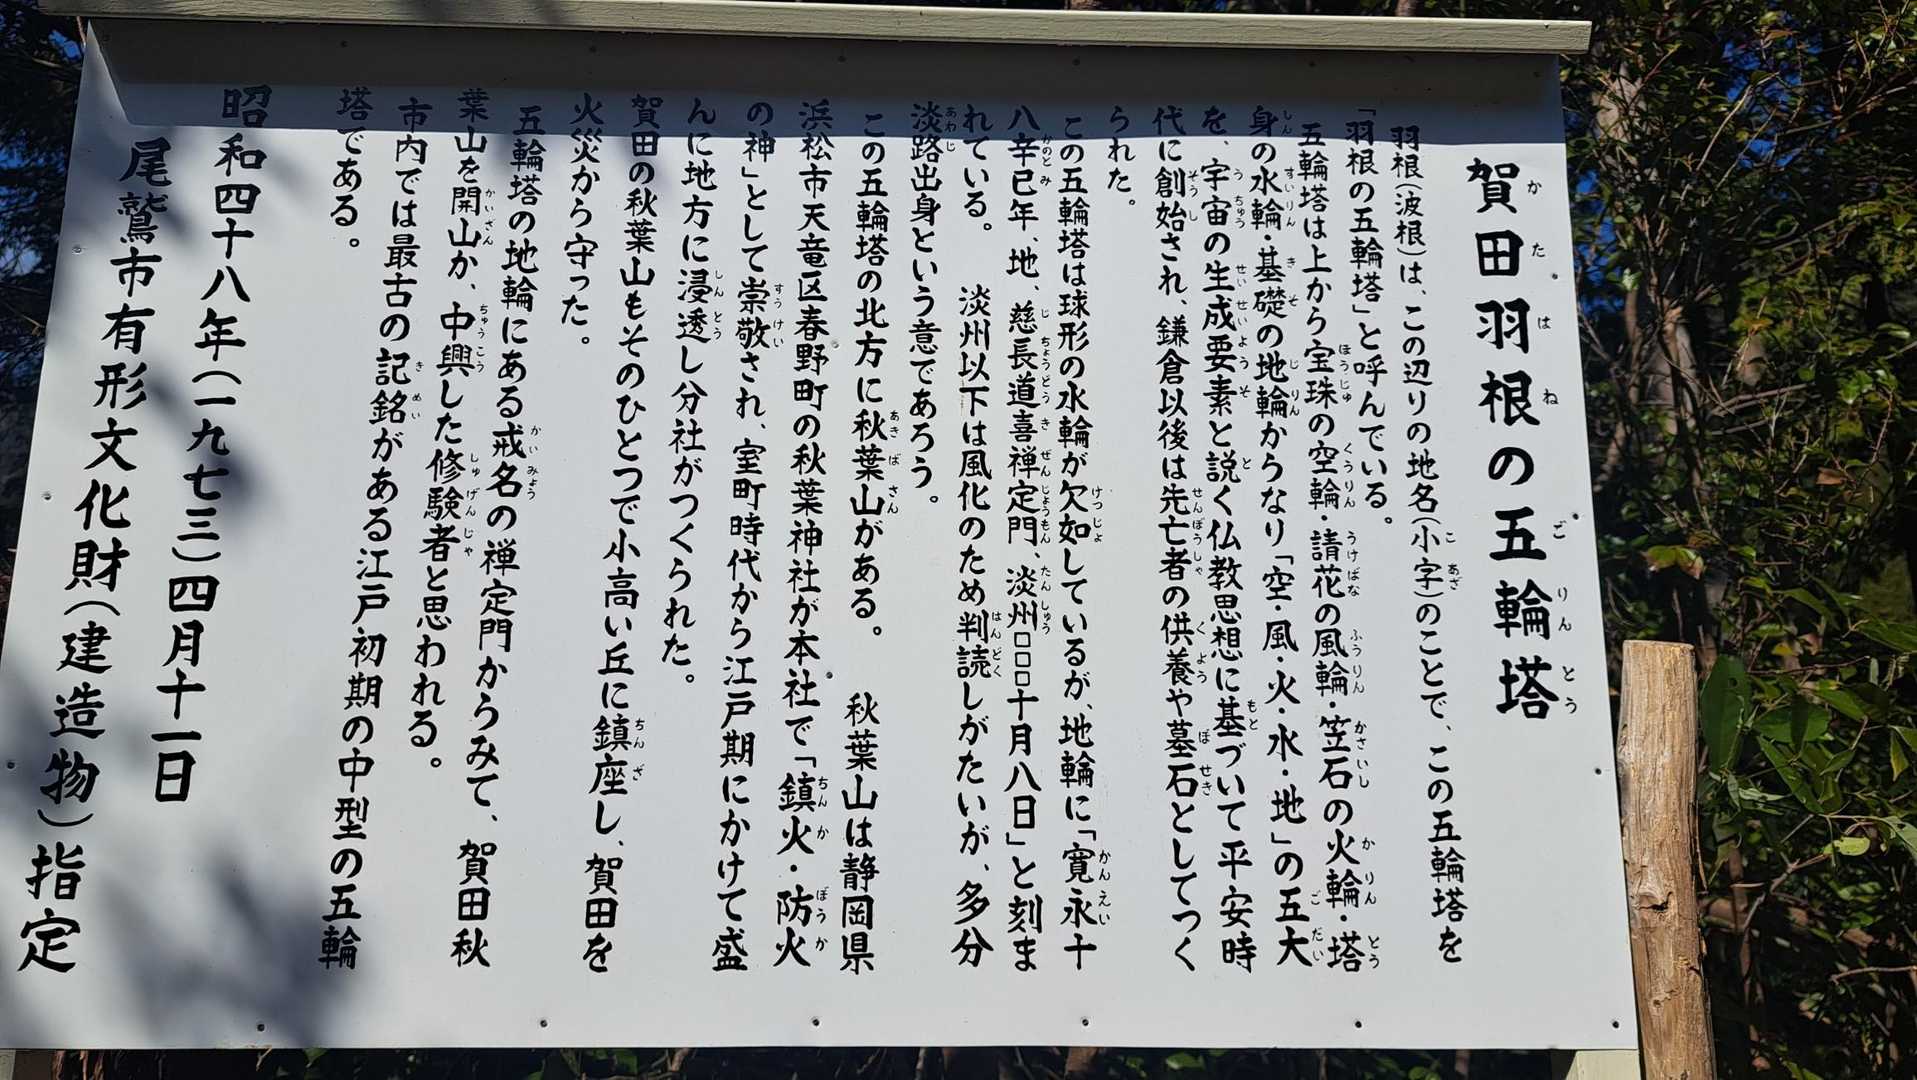 賀田羽根の五輪塔
羽根(波根)は、この辺りの地名(小字)のことで、この五輪塔を
「羽根の五輪塔」と呼んでいる。
五輪塔は上から宝珠の空輪・請花の風輪・笠石の火輪・塔
身の水輪・基礎の地輪からなり「空・風・火・水・地」の五大
を、宇宙の生成要素と説く仏教思想に基づいて平安時
代に創始され、鎌倉以後は先亡者の供養や墓石としてつく
られた。
この五輪塔は球形の水輪が欠如しているが、地輪に「寛永十
八辛巳年、地、慈長道喜禅定門、淡州□□□十月八日」と刻ま
れている。　淡州以下は風化のため判読しがたいが、多分
淡路出身という意であろう。
この五輪塔の北方に秋葉山がある。　秋葉山は静岡県
浜松市天竜区春野町の秋葉神社が本社で「鎮火・防火
の神」として崇敬され、室町時代から江戸期にかけて盛
んに地方に浸透し分社がつくられた。
賀田の秋葉山もそのひとつで小高い丘に鎮座し、賀田を
火災から守った。
五輪塔の地輪にある戒名の禅定門からみて、賀田秋
葉山を開山か、中興した修験者と思われる。
市内では最古の記銘がある江戸初期の中型の五輪
塔である。
昭和四十八年(一九七三)四月十一日
尾鷲市有形文化財(建造物)指定